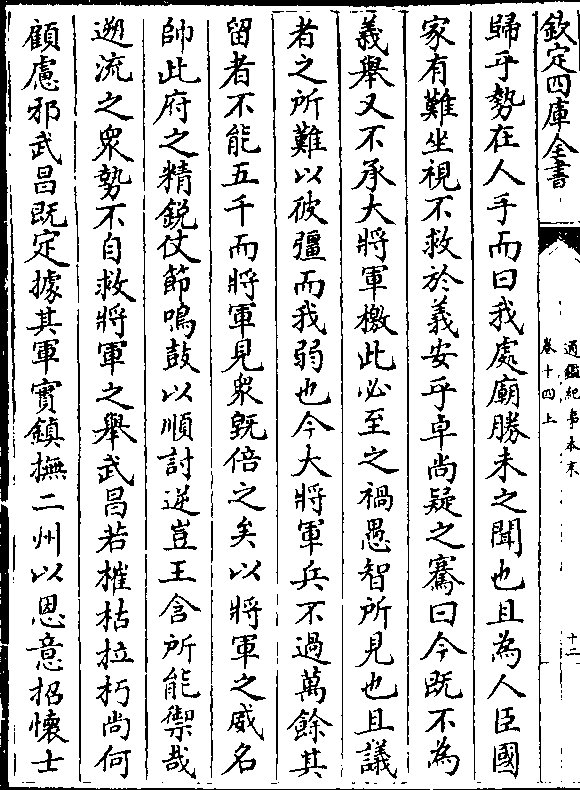 欽定四庫全書
通鑑紀事本末
卷十四上
十二
歸乎勢在人手而曰我處廟勝未之聞也且為人臣國
家有難坐視不救於義安乎卓尚疑之騫曰今既不為
義舉又不承大將軍檄此必至之禍愚智所見也且議
者之所難以彼彊而我弱也今大將軍兵不過萬餘其
留者不能五千而將軍見衆既倍之矣以將軍之威名
帥此府之精鋭仗節鳴鼓以順討逆豈王含所能禦哉
遡流之衆勢不自救將軍之舉武昌若摧枯拉朽尚何
顧慮邪武昌既定據其軍實鎮撫二州以恩意招懷士